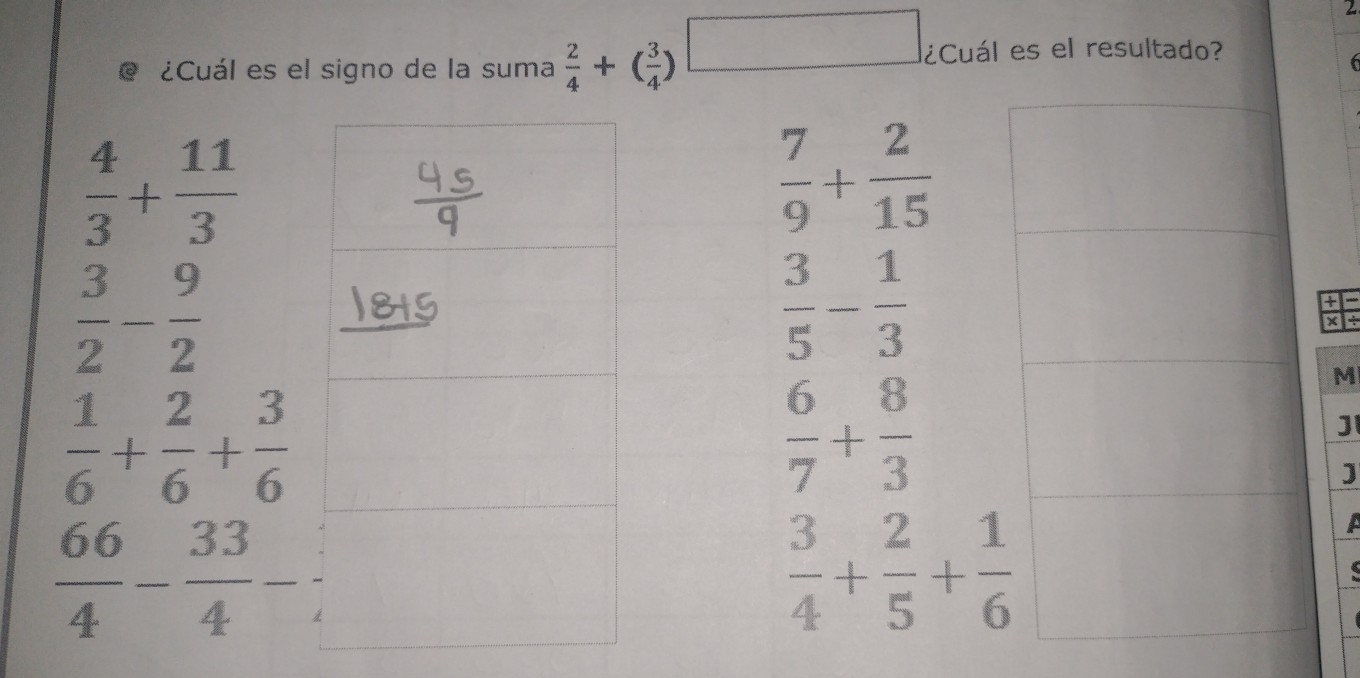 ¿Cuál es el signo de la suma 2/4 + (3/4) ¿Cuál es el resultado?
4/3 + 11/3
45/9
3/2 − 9/2
18+5
1/6 + 2/6 + 3/6
66/4 − 33/4 −
7/9 + 2/15
3/5 − 1/3
6/7 + 8/3
3/4 + 2/5 + 1/6
2
6
+ −
× ÷
M
J
J
A